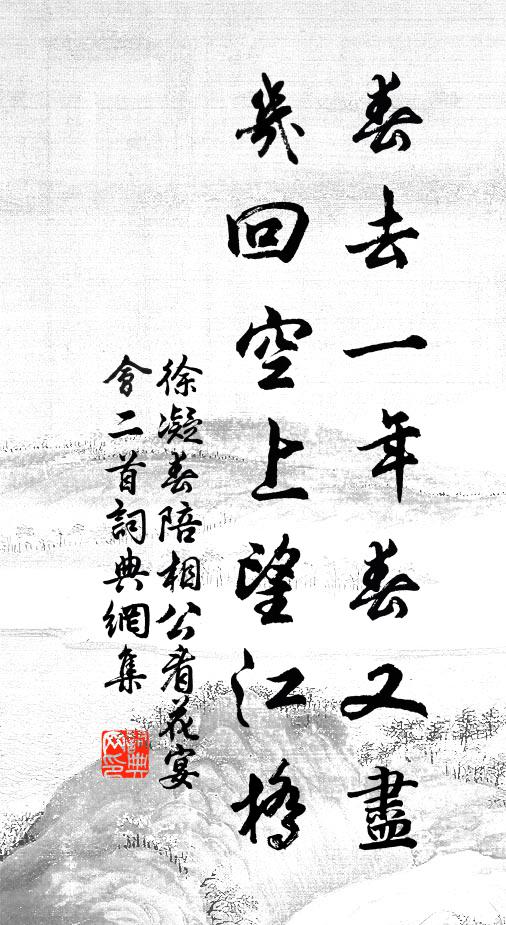 春去一年春又盡
幾回空上望江橋
徐凝春陪相公看花宴
會二首詞典網集